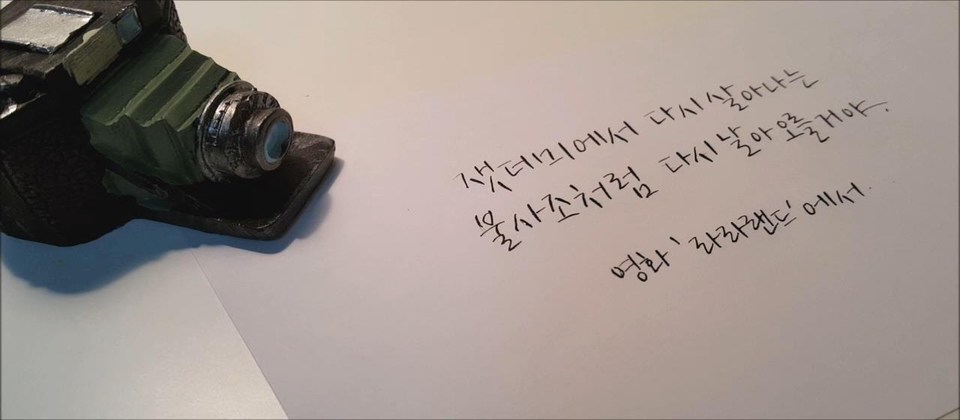 잿더미에서 다시 살아나는
불사조처럼 다시 날아 오를거야.
영화 '라라랜드' 에서.